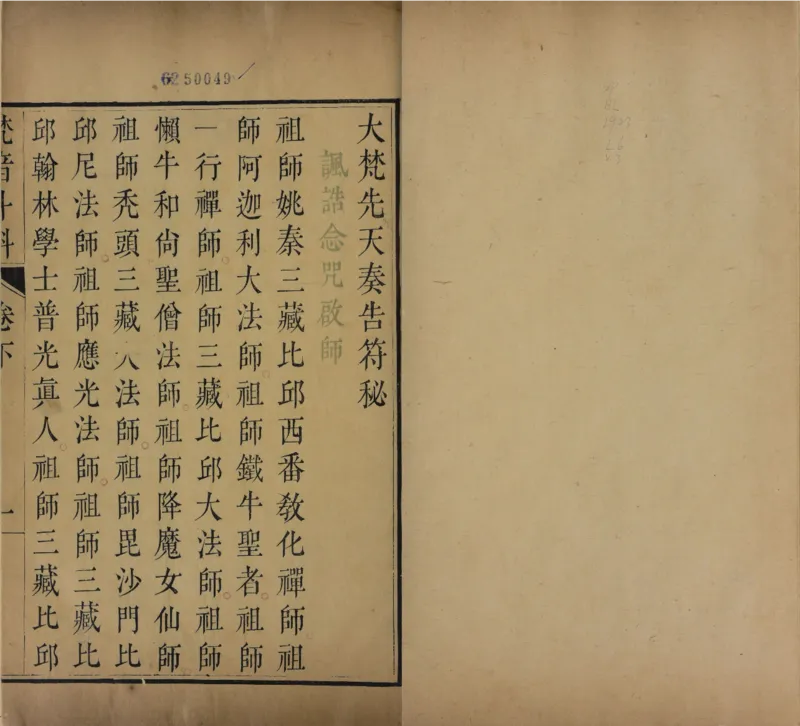 6250049
大梵先天奏告符秘
諷誥念咒啟師
祖師姚秦三藏比邱西番教化禪師祖
師阿迦利大法師祖師鐵牛聖者祖師
一行禪師祖師三藏比邱大法師祖師
懶牛和尙聖僧法師祖師降魔女仙師
祖師秃頭三藏大法師祖師毘沙門比
邱尼法師祖師應光法師祖師三藏比
邱翰林學士普光眞人祖師三藏比邱
梵音斗科 卷下 一